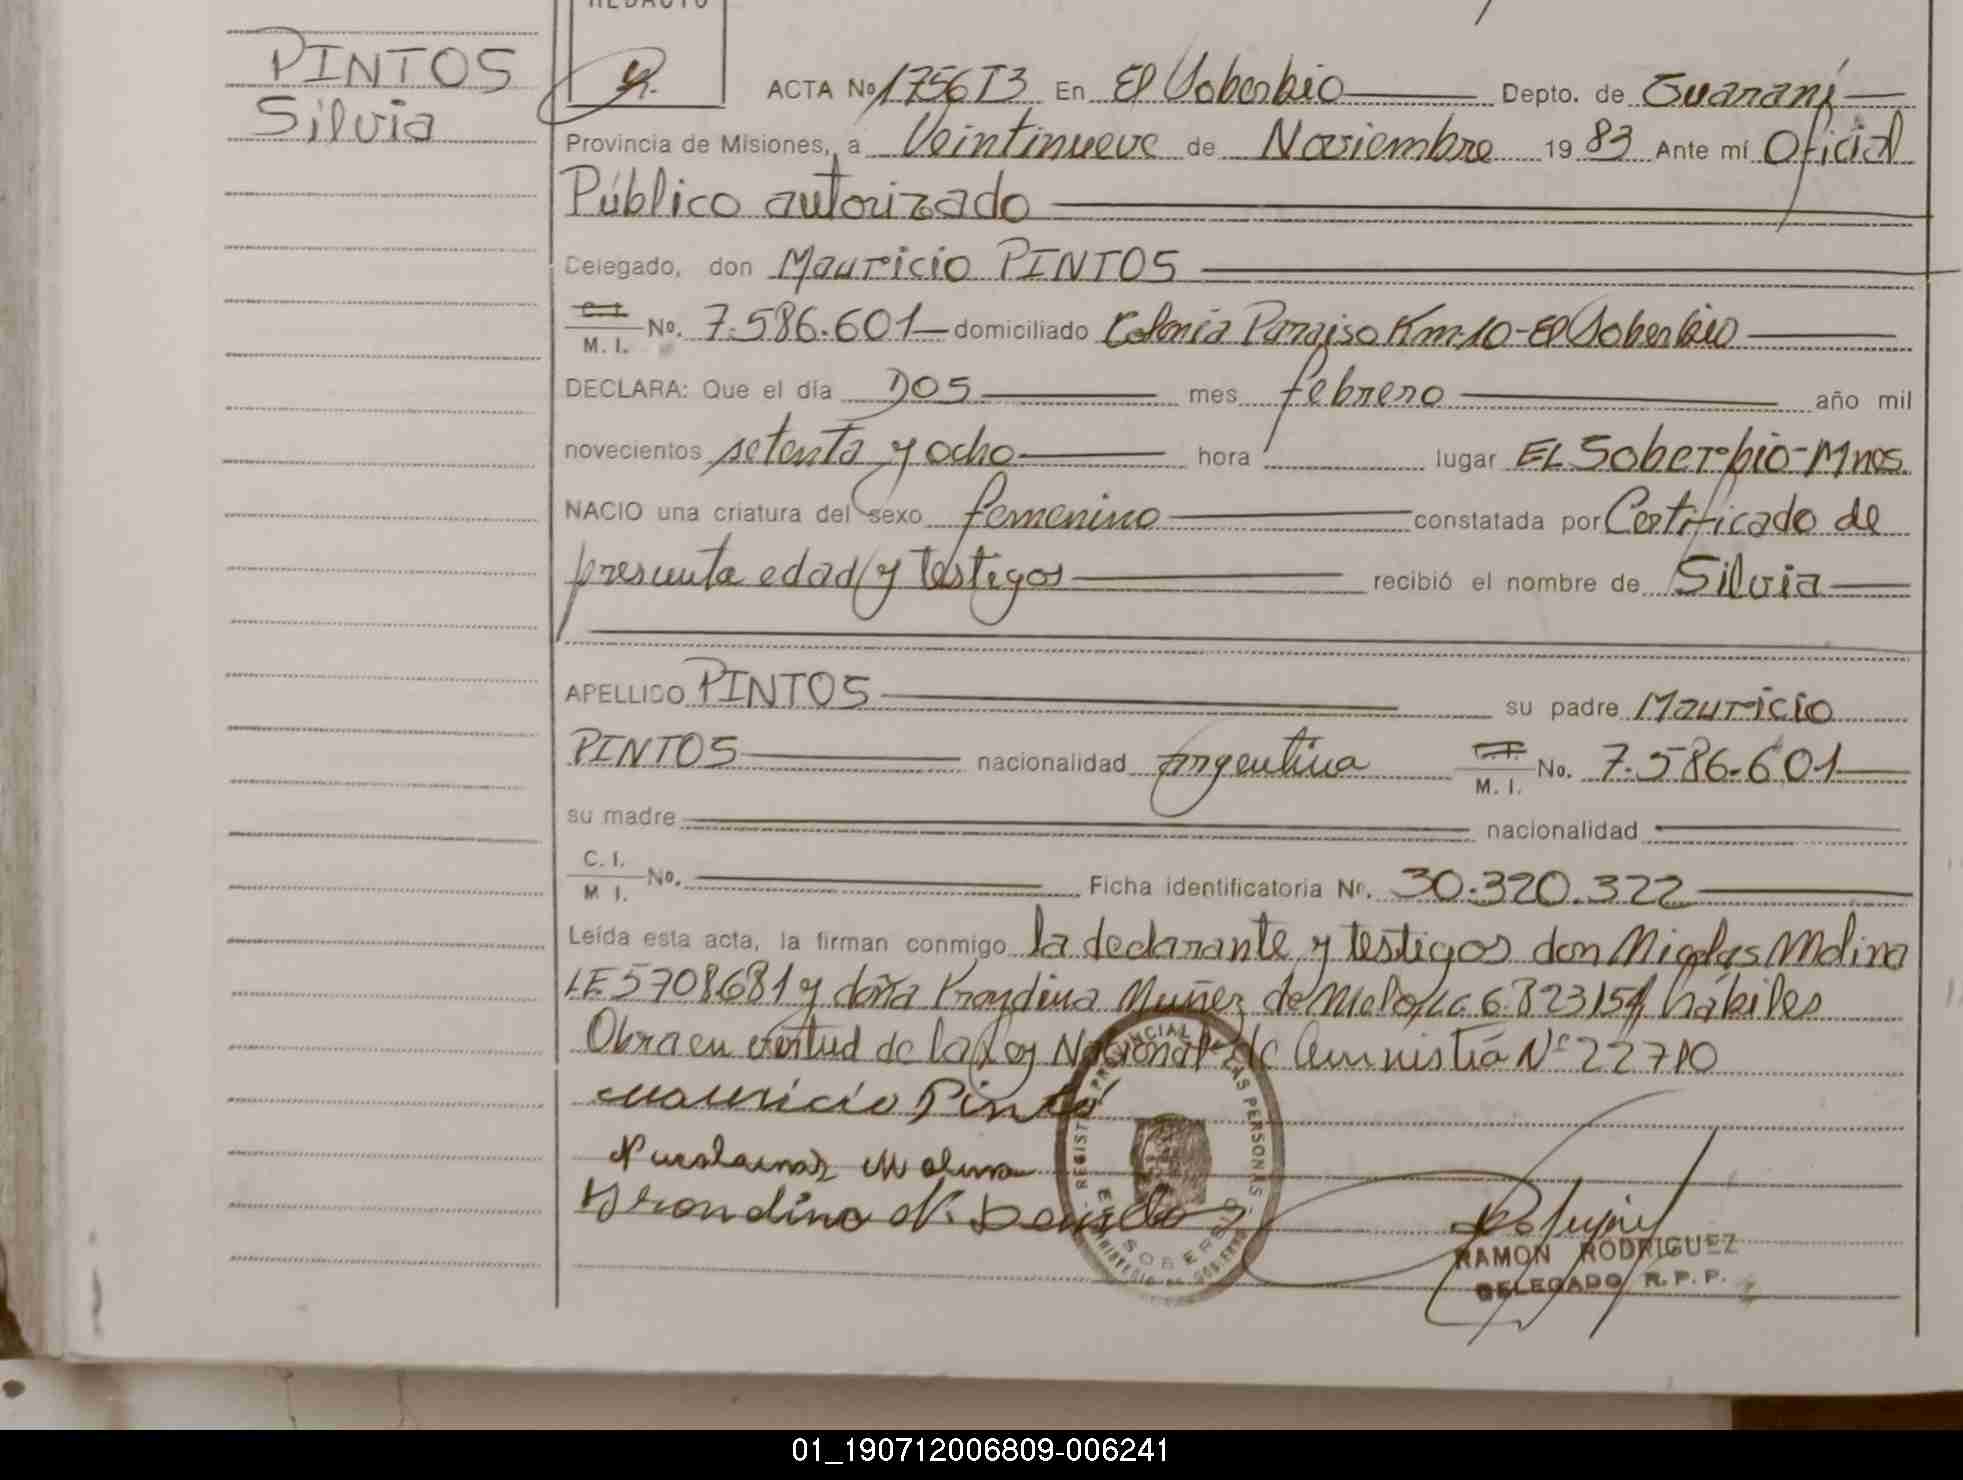 PINTOS
Silvia
REDACTO
ACTA No 1756 T3 En El Soberbio Depto. de Guaraní
Provincia de Misiones, a Veintinueve de Noviembre 19 83 Ante mí Oficial
Público autorizado
Delegado, don Mauricio PINTOS
C. I.
M. I. No. 7.586.601 domiciliado Colonia Paraiso Km.10-El Soberbio
DECLARA: Que el día DOS mes febrero año mil
novecientos setenta y ocho hora lugar EL Soberbio-Mnes.
NACIO una criatura del sexo femenino constatada por Certificado de
presunta edad y testigos recibió el nombre de Silvia
APELLIDO PINTOS su padre Mauricio
PINTOS nacionalidad Argentina M. I. No. 7.586.601
su madre nacionalidad
C. I.
M. I. No. Ficha identificatoria Nº. 30.320.322
Leída esta acta, la firman conmigo la declarante y testigos don Nicolas Molina
LE 5708681 y doña Muñez de Melo, LC 6.823154, hábiles
Obra en virtud de la Ley Nacional de Amnistiá Nº 22710
Mauricio Pinto
Molina
REGISTRO PROVINCIAL DE LAS PERSONAS
EL SOBERBIO
RAMON RODRIGUEZ
DELEGADO R. P. P.
01_190712006809-006241